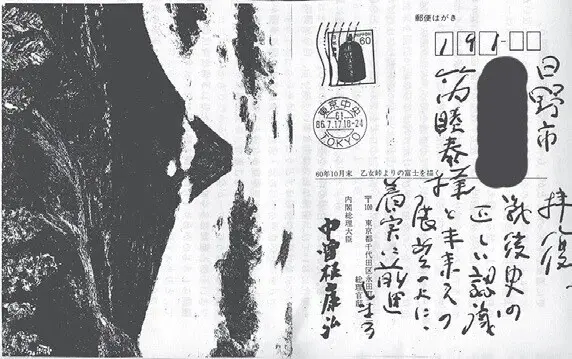 郵便はがき
191-
60
東京中央
61
86.7.17 18-24
TOKYO
日野市
睦泰様
拝復、
戦後史の
正しい認識
と未来への
展望のもとに、
着実に前進
しませう
60年10月末 乙女峠よりの富士を描
〒100 東京都千代田区永田
総理官
内閣総理大臣
中曽根康弘